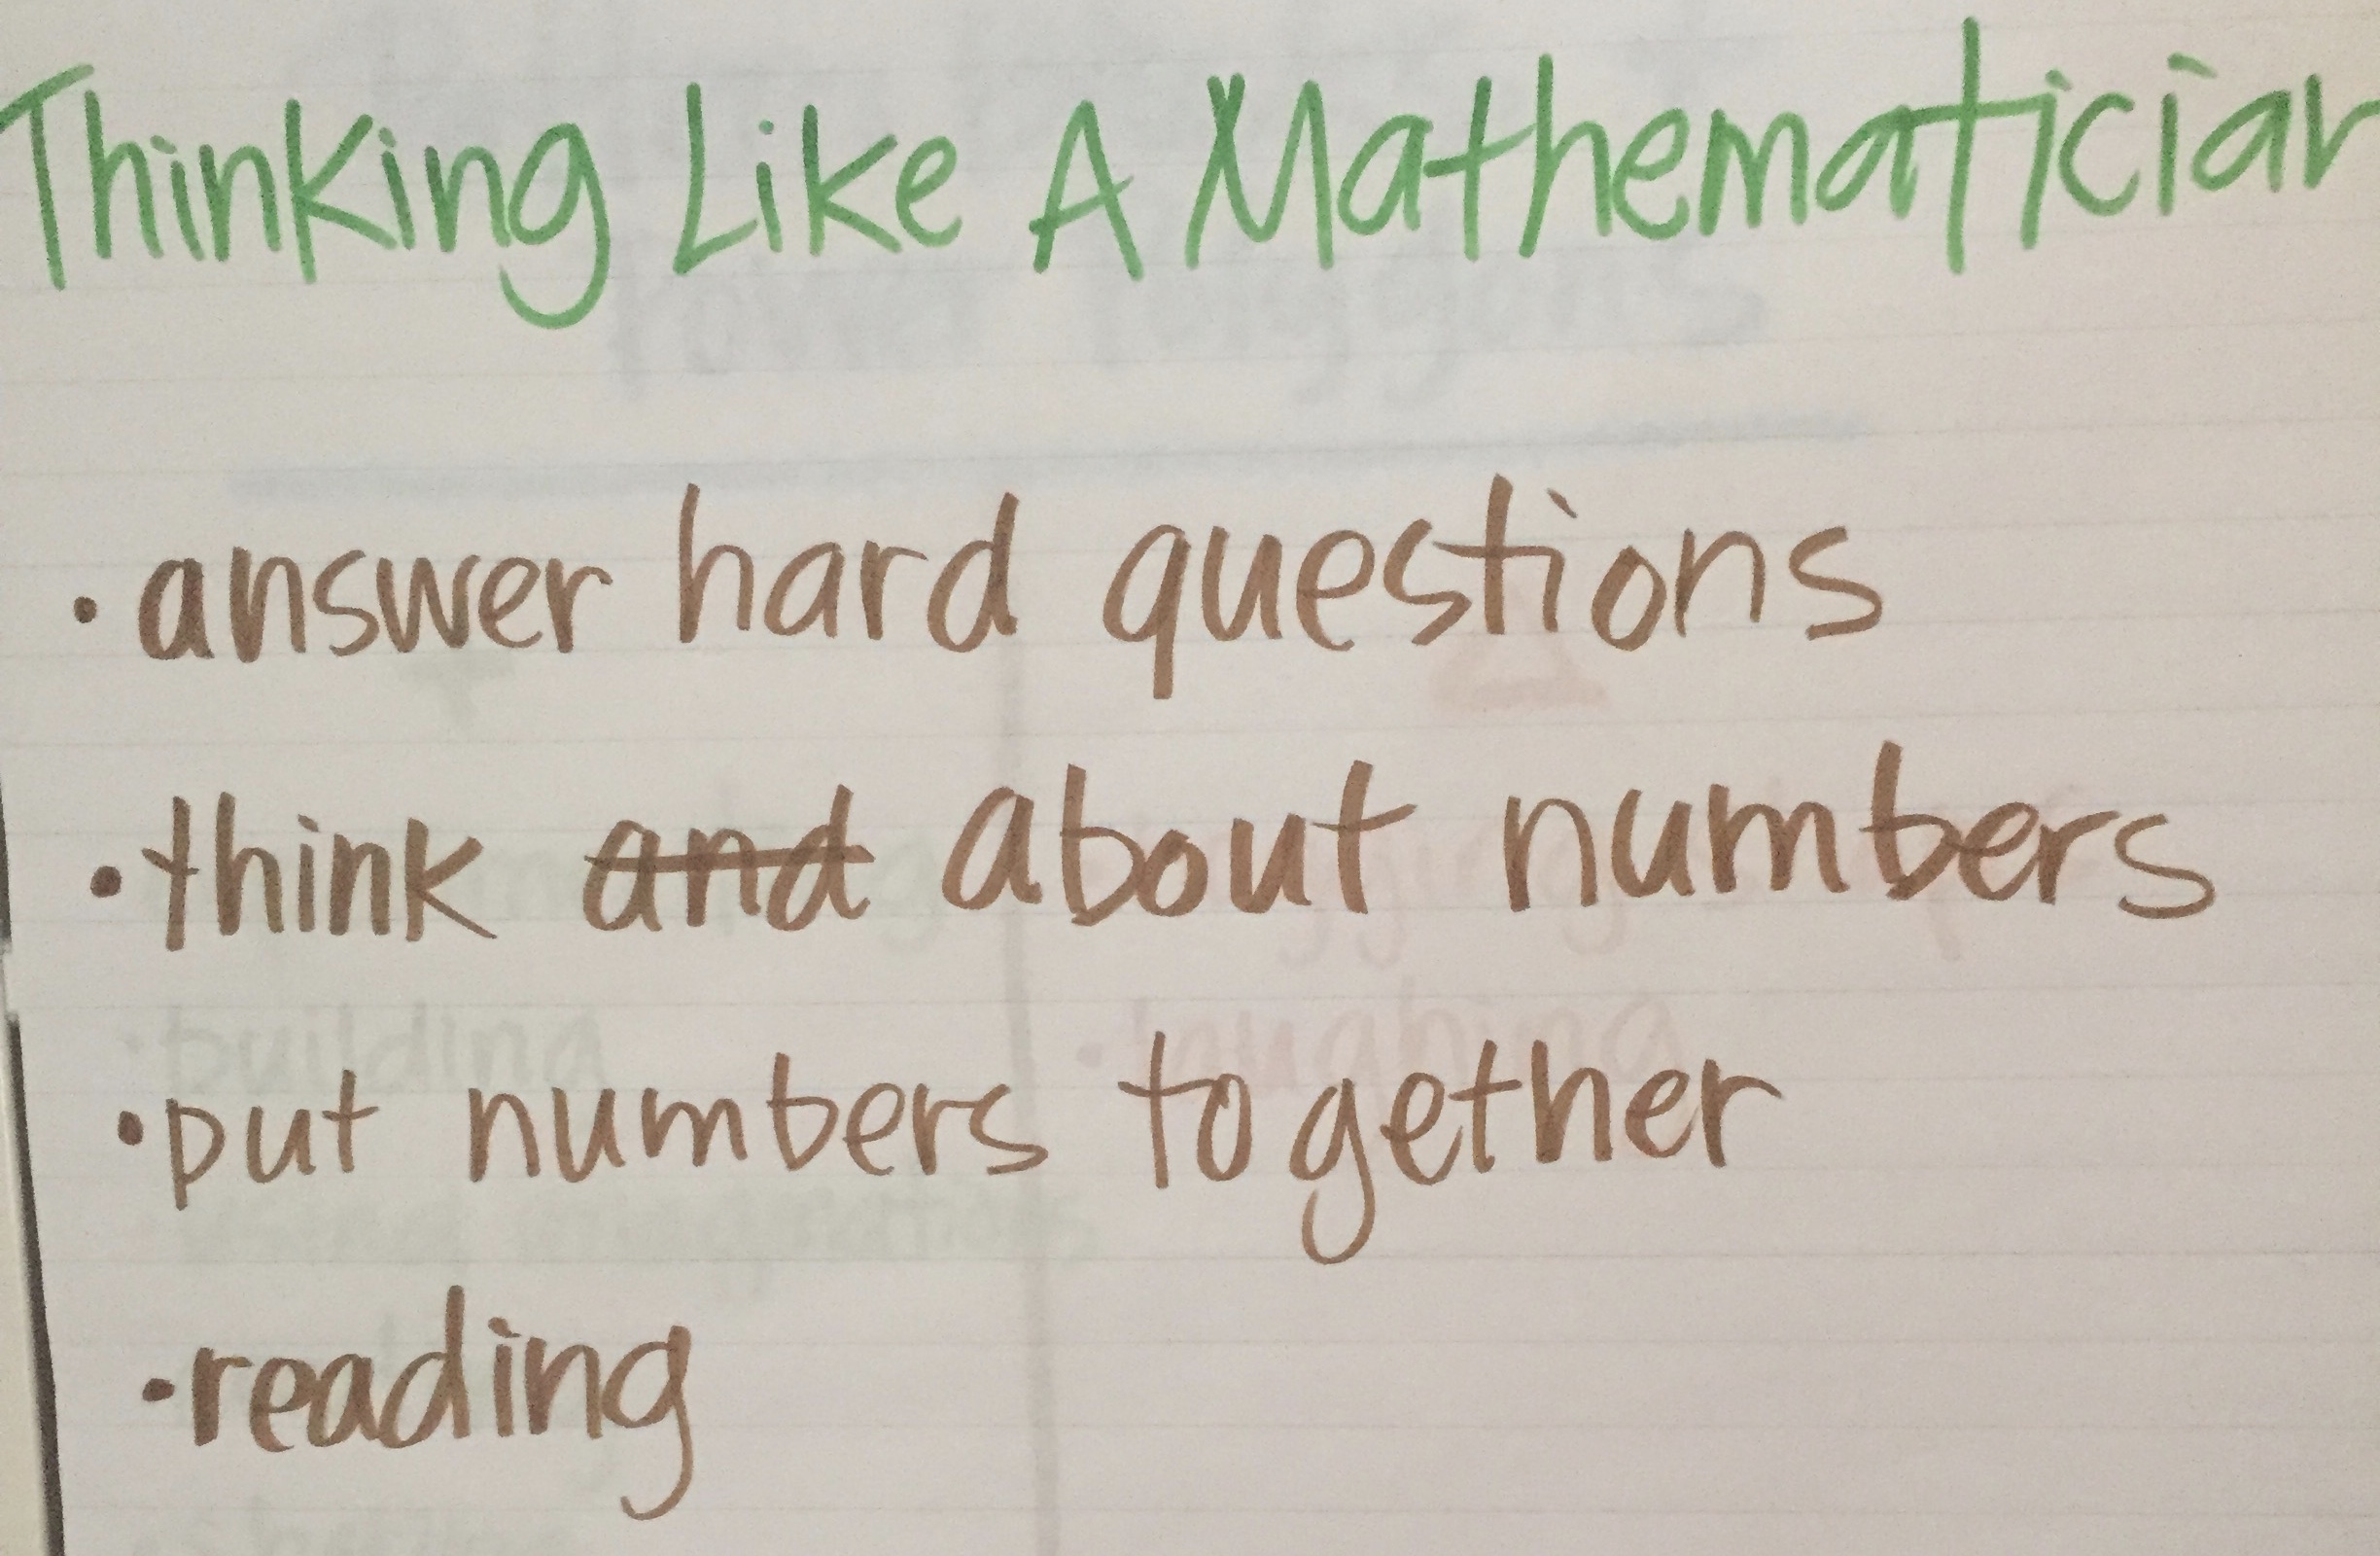 Thinking Like A Mathematician
·answer hard questions
·think and about numbers
·put numbers together
·reading
building
laughing